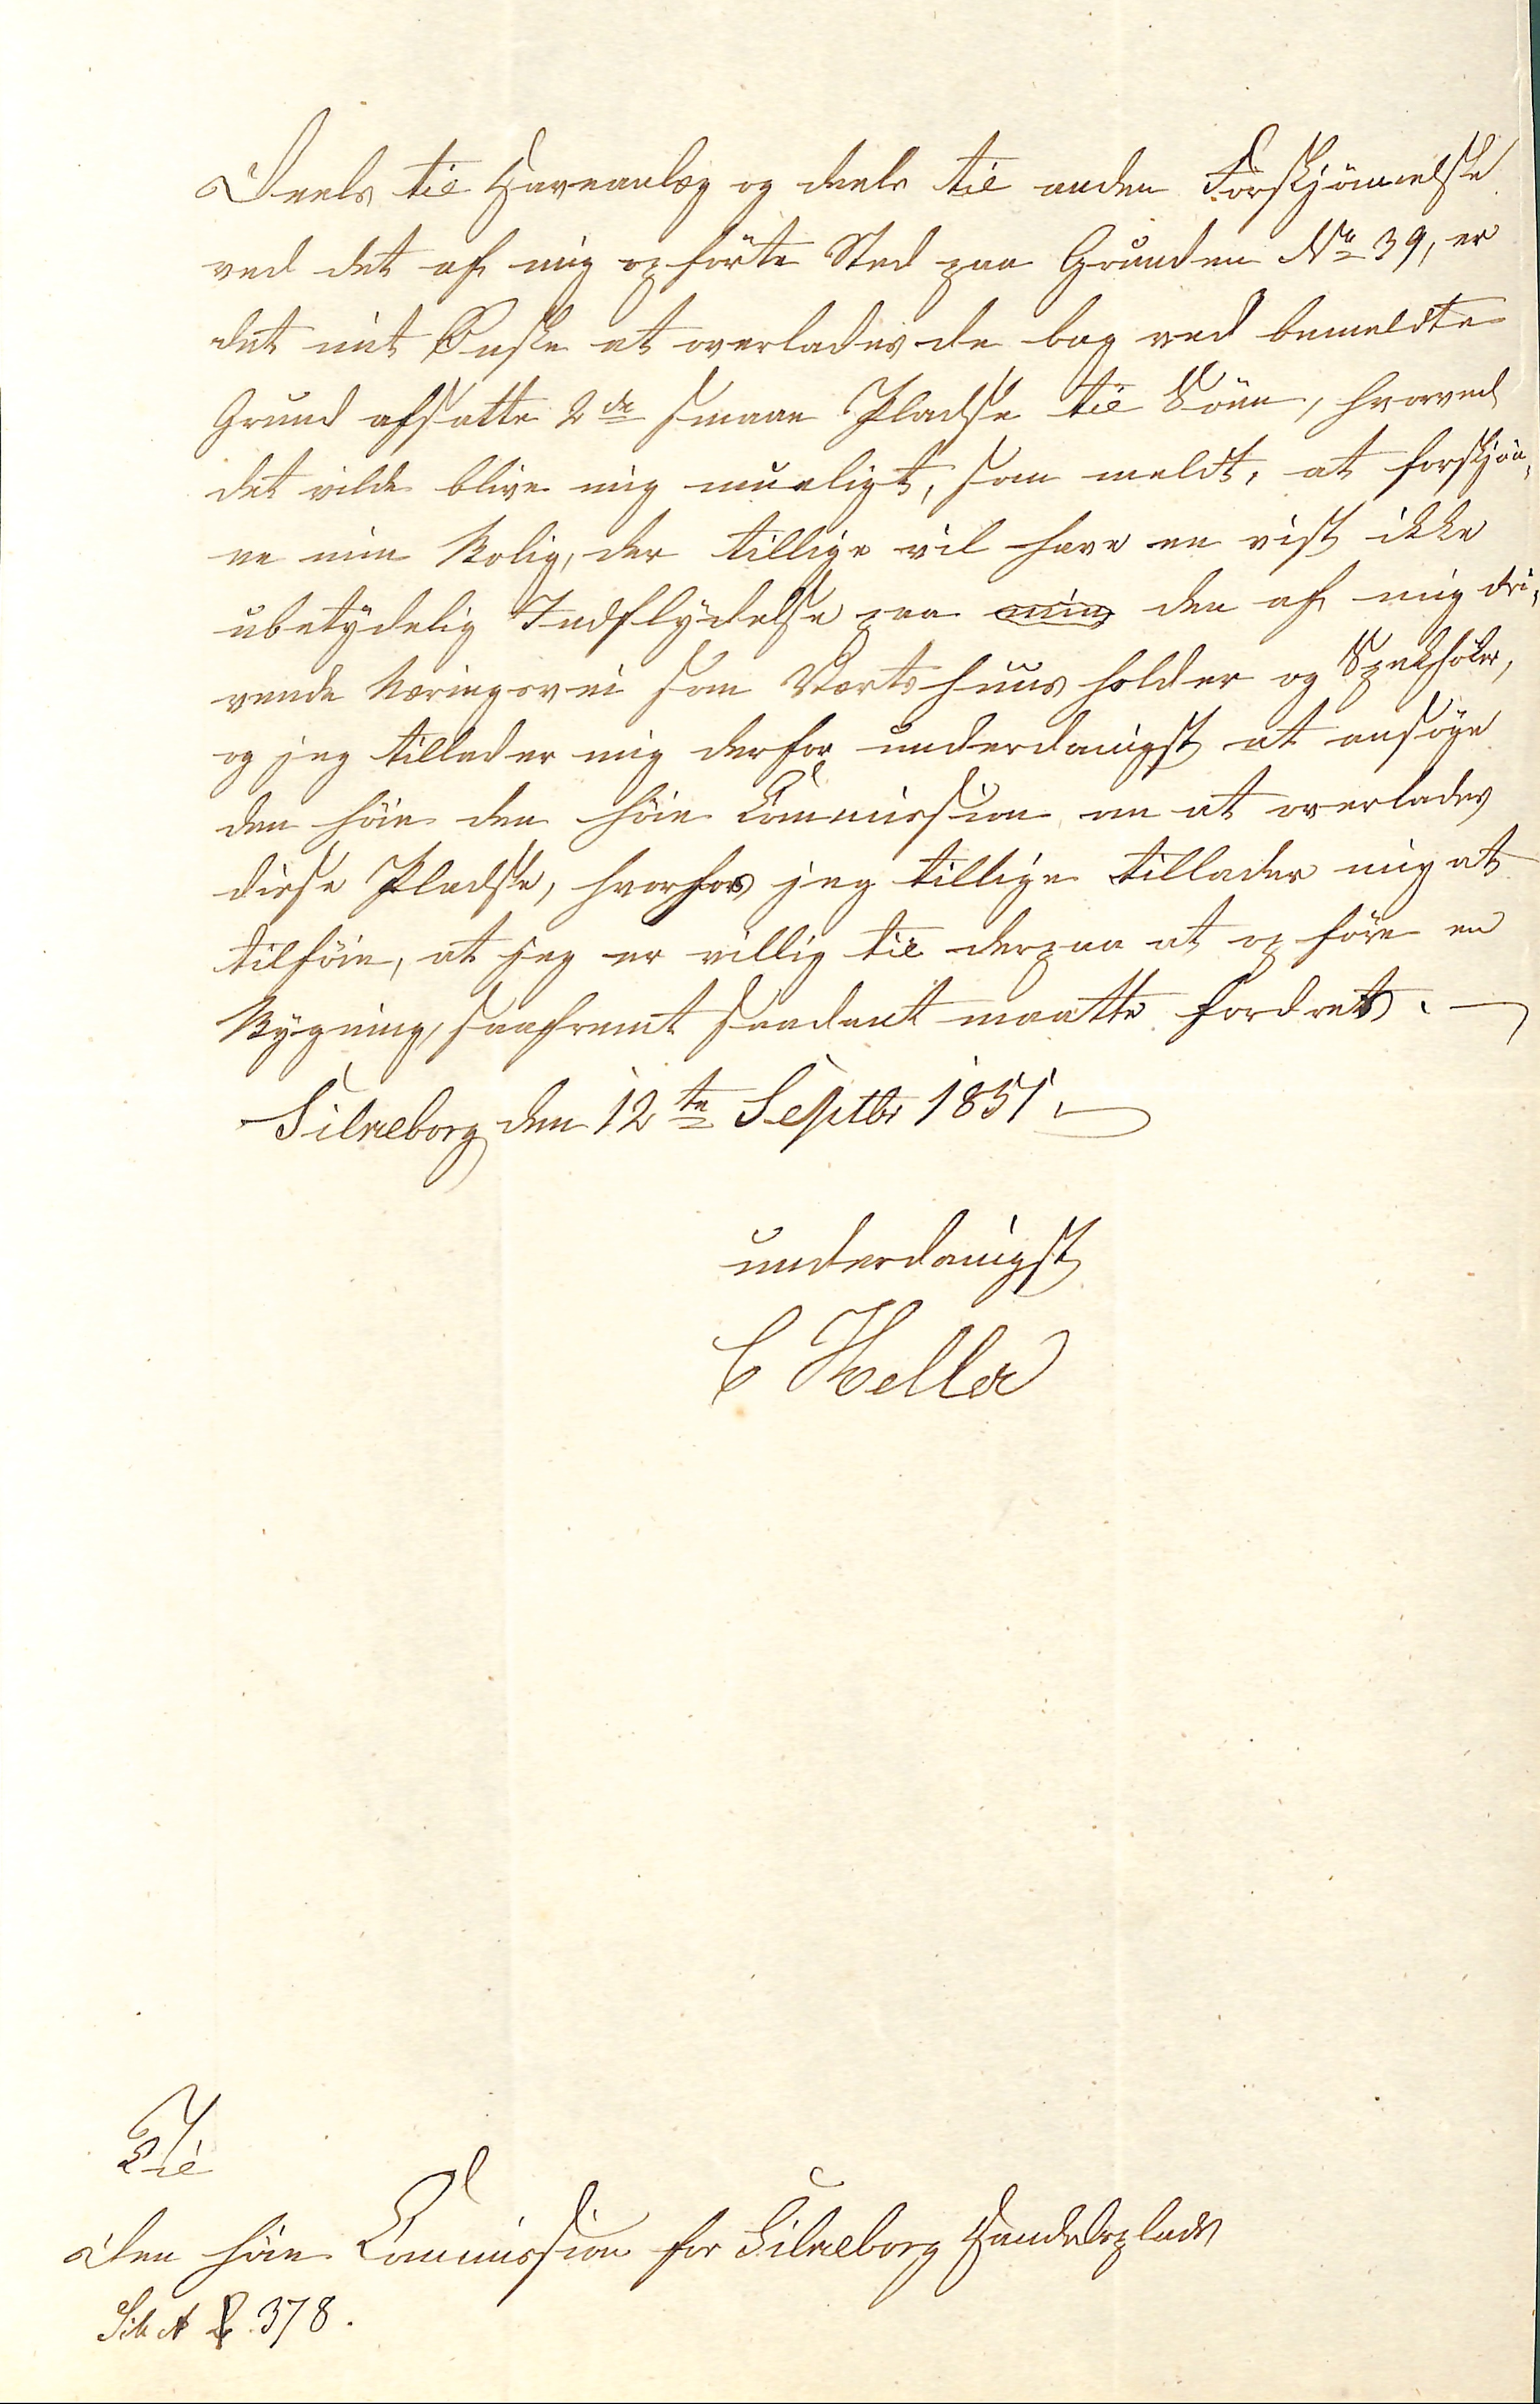 Deels til Haveanlæg og deels til anden Forskjønnelse
ved det af mig opförte Sted paa Grunden No 39, er
det mit Ønske at overlades de bag ved bemeldte
Grund afsatte 2de smaae Pladse til, hvorved
det vilde blive mig mueligt, som meldt, at forskjön-
ne min Bolig, der tillige vil have en vist ikke
ubetydelig Indflydelse paa min den af mig dri-
vende Næringsvei som Værtshuusholder og Spekhöker,
og jeg tillader mig derfor underdanigst at ansöge
den höie den höie Commission om at overlades
disse Pladse, hvorfor jeg tillige tillader mig at
tilföie, at jeg er villig til derpaa at opföre en
Bygning, saafremt saadant maatte fordres.
Silkeborg den 12te Septbr 1851.
underdanigst
C Heller
Til
den höie Commission for Silkeborg Handelsplads
Silk A 378.